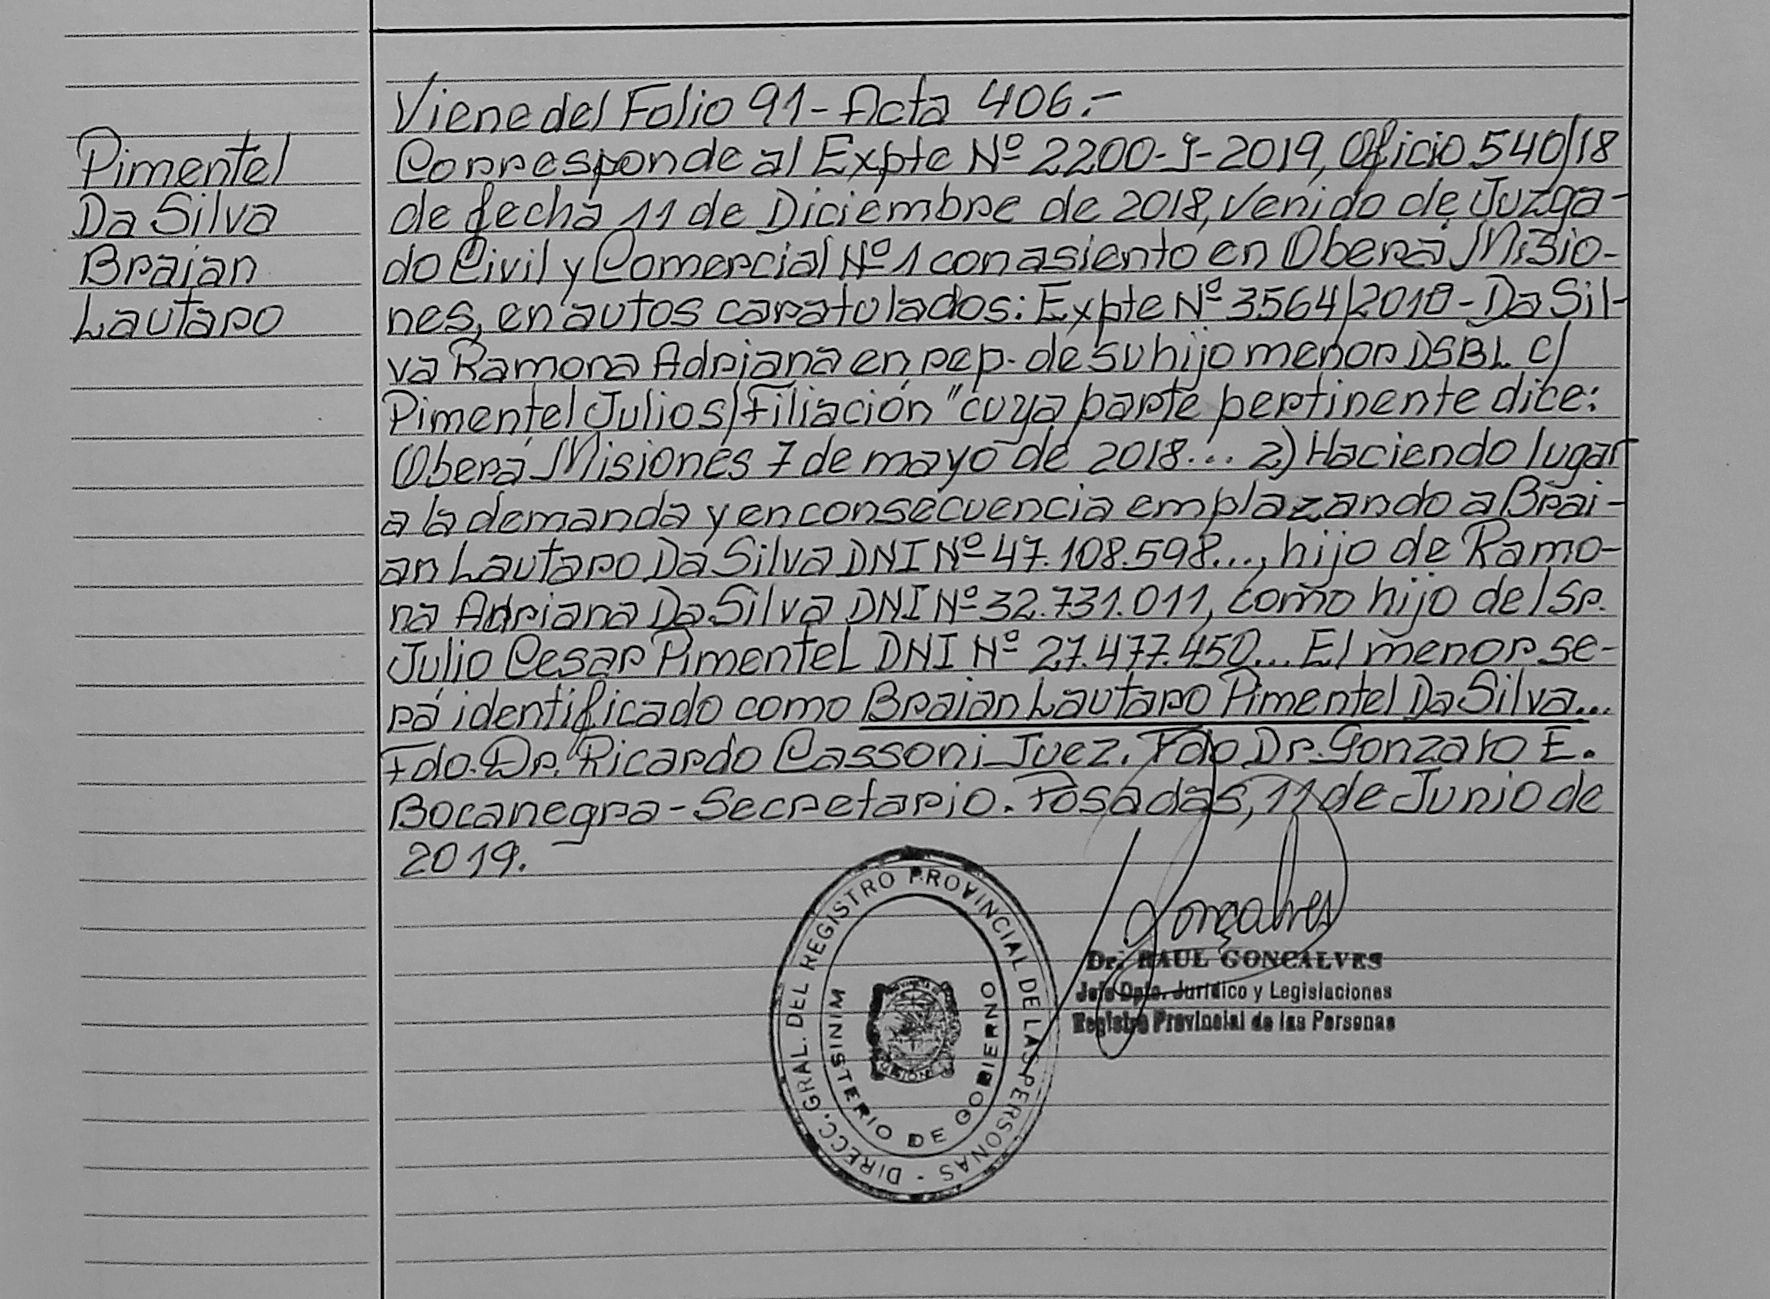 Pimentel
Da Silva
Braian
Lautaro
Viene del Folio 91 - Acta 406.-
Corresponde al Expte Nº 2200-J-2019, Oficio 540/18
de fecha 11 de Diciembre de 2018, venido de Juzga-
do Civil y Comercial Nº 1 con asiento en Oberá Misio-
nes, en autos caratulados: Expte Nº 3564/2010 - Da Sil-
va Ramona Adriana en rep. de su hijo menor DSBL c/
Pimentel Julio s/ Filiación" cuya parte pertinente dice:
Oberá Misiones 7 de mayo de 2018... 2) Haciendo lugar
a la demanda y en consecuencia emplazando a Brai-
an Lautaro Da Silva DNI Nº 47.108.598..., hijo de Ramo-
na Adriana Da Silva DNI Nº 32.731.011, como hijo del Sr.
Julio Cesar Pimentel DNI Nº 27.477.450... El menor se-
rá identificado como Braian Lautaro Pimentel Da Silva...
Fdo. Dr. Ricardo Cassoni Juez. Fdo Dr. Gonzalo E.
Bocanegra - Secretario. Posadas, 11 de Junio de
2019.
DIRECC. GRAL. DEL REGISTRO PROVINCIAL DE LAS PERSONAS -
MINISTERIO DE GOBIERNO
Gonçalves
Dr. RAUL GONCALVES
Jefe Dpto. Jurídico y Legislaciones
Registro Provincial de las Personas